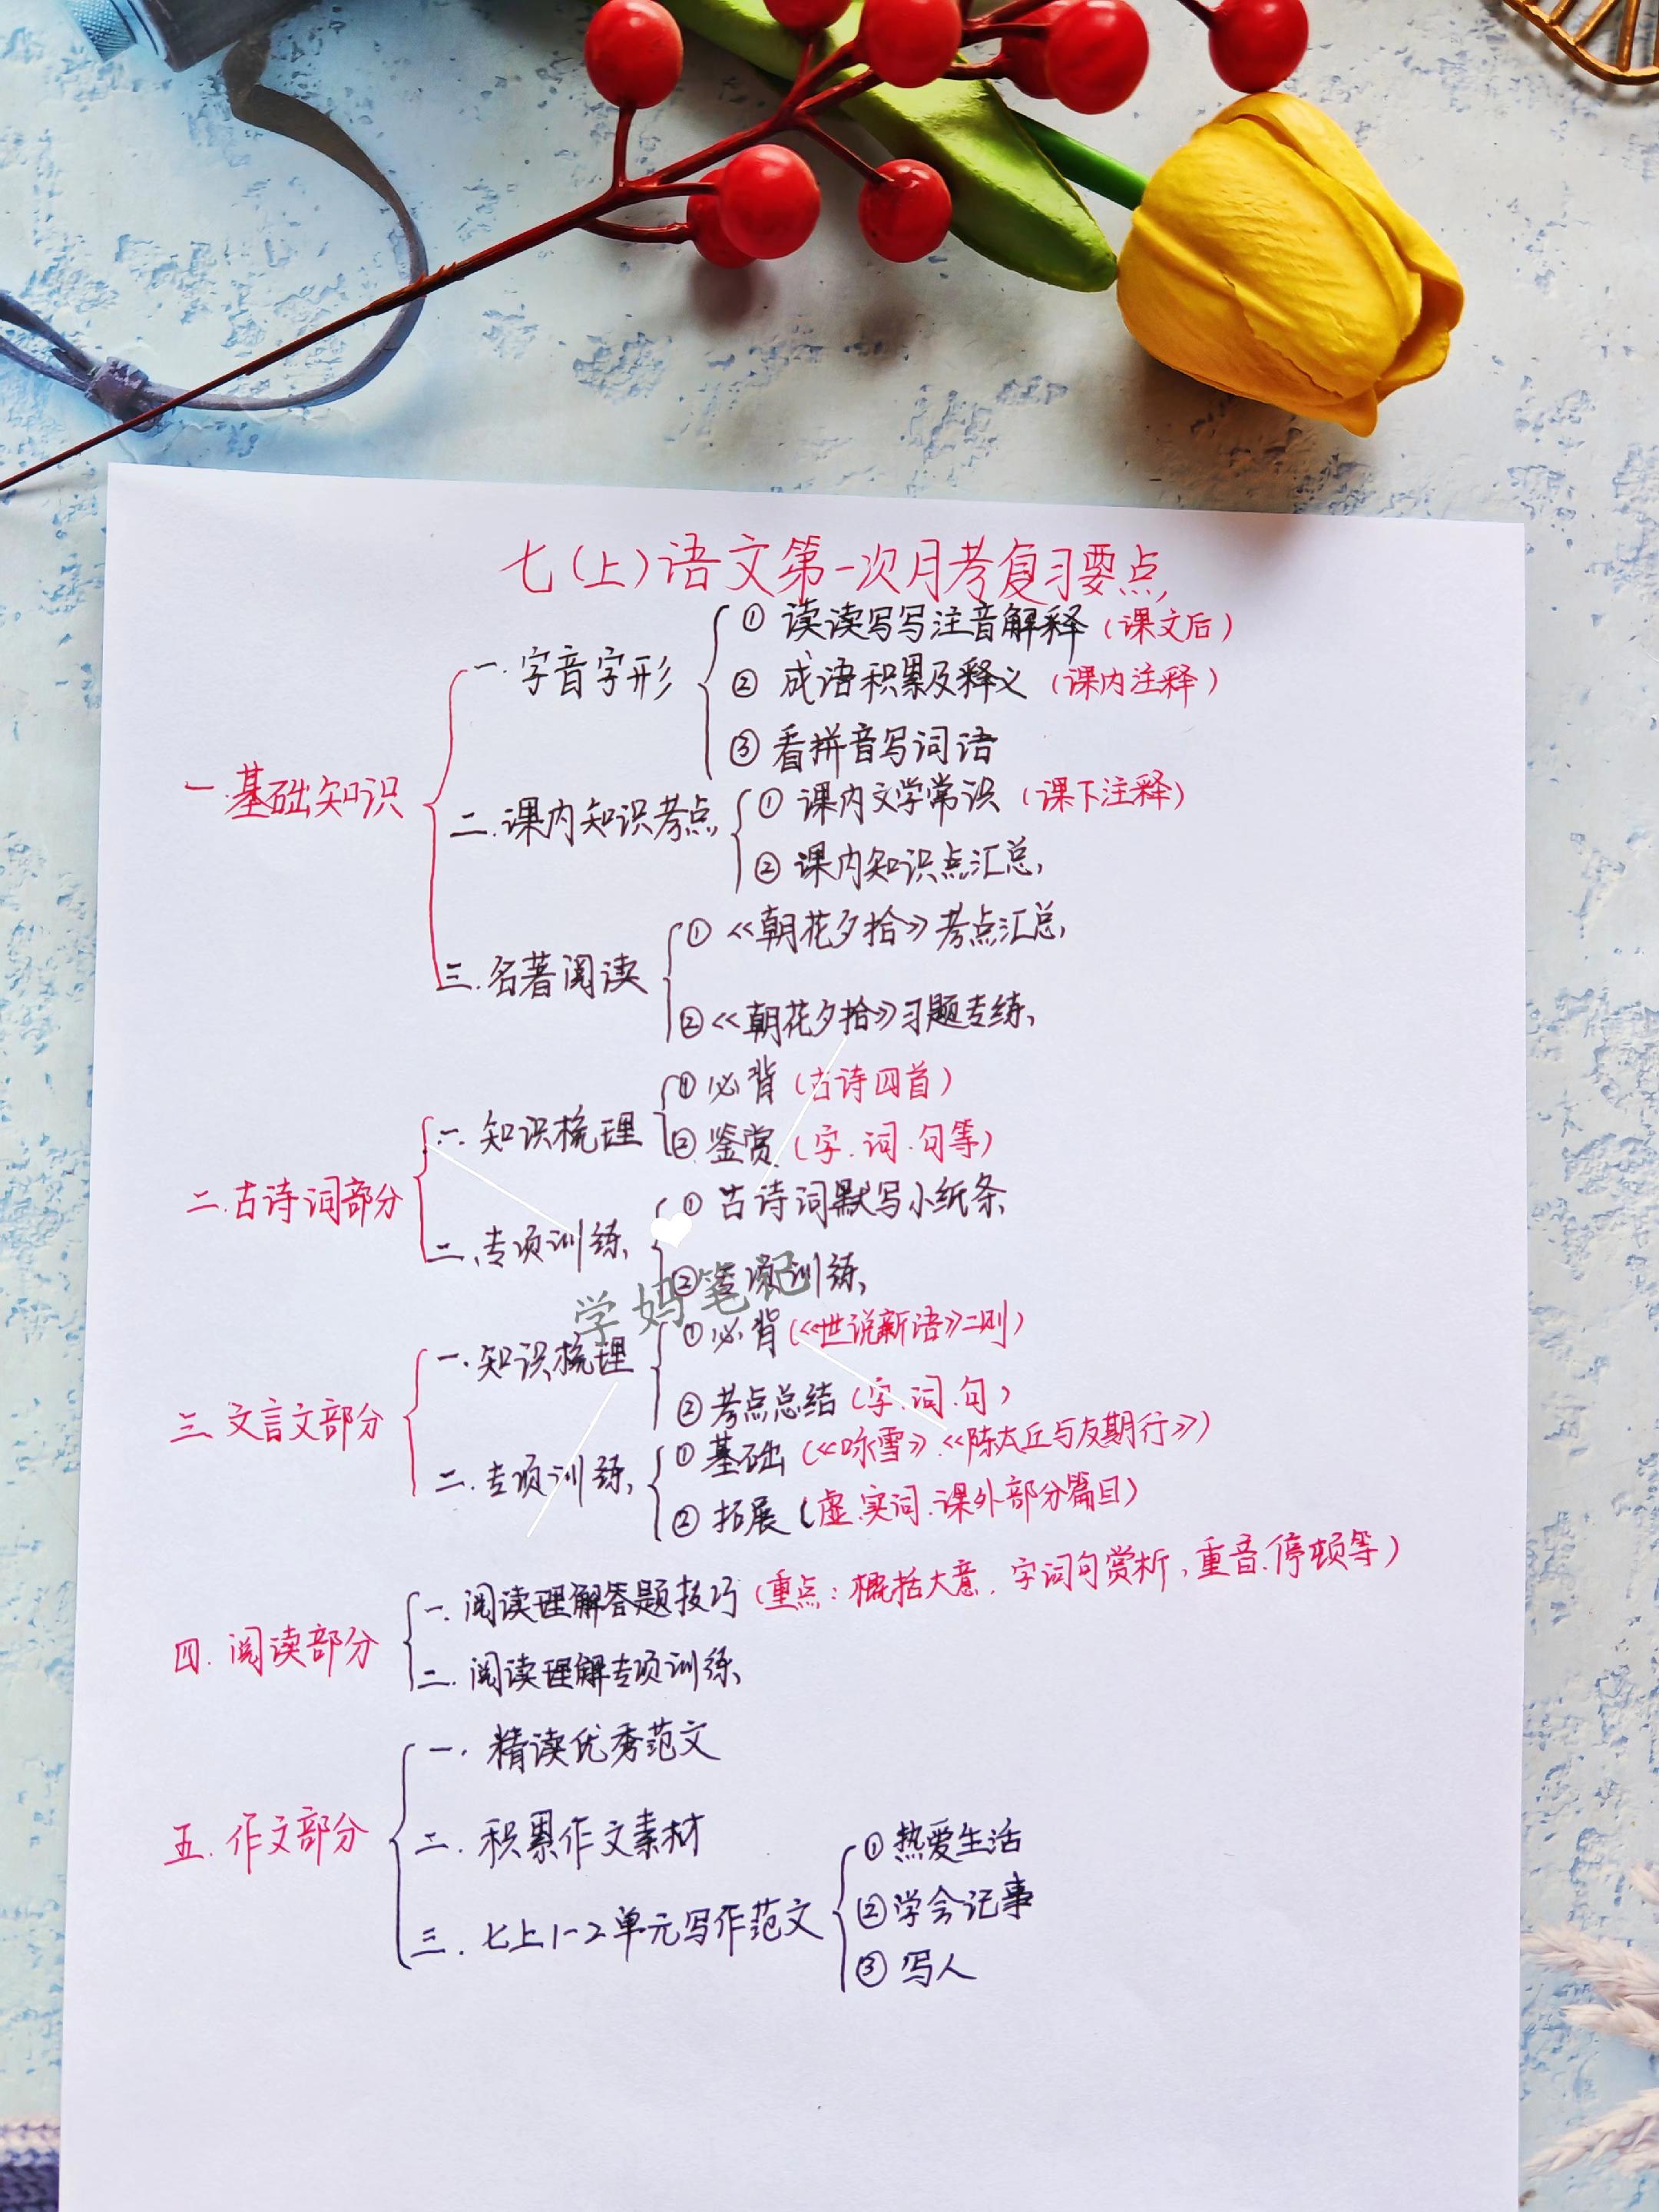 七(上)语文第一次月考复习要点
一.基础知识
一.字音字形
① 读读写写注音解释(课文后)
② 成语积累及释义(课内注释)
③ 看拼音写词语
二.课内知识考点
① 课内文学常识(课下注释)
② 课内知识点汇总
三.名著阅读
①《朝花夕拾》考点汇总
②《朝花夕拾》习题专练
二.古诗词部分
一.知识梳理
① 必背(古诗四首)
② 鉴赏(字.词.句等)
二.专项训练
① 古诗词默写小纸条
② 专项训练
学妈笔记
三.文言文部分
一.知识梳理
① 必背(《世说新语》二则)
② 考点总结(字.词.句)
二.专项训练
① 基础(《咏雪》.《陈太丘与友期行》)
② 拓展(虚.实词.课外部分篇目)
四.阅读部分
一.阅读理解答题技巧(重点:概括大意.字词句赏析,重音.停顿等)
二.阅读理解专项训练
五.作文部分
一.精读优秀范文
二.积累作文素材
三.七上1-2单元写作范文
① 热爱生活
② 学会记事
③ 写人